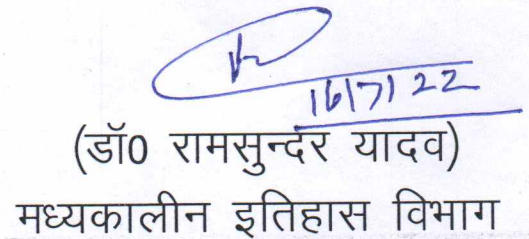 16/7/22
(डॉ0 रामसुन्दर यादव)
मध्यकालीन इतिहास विभाग